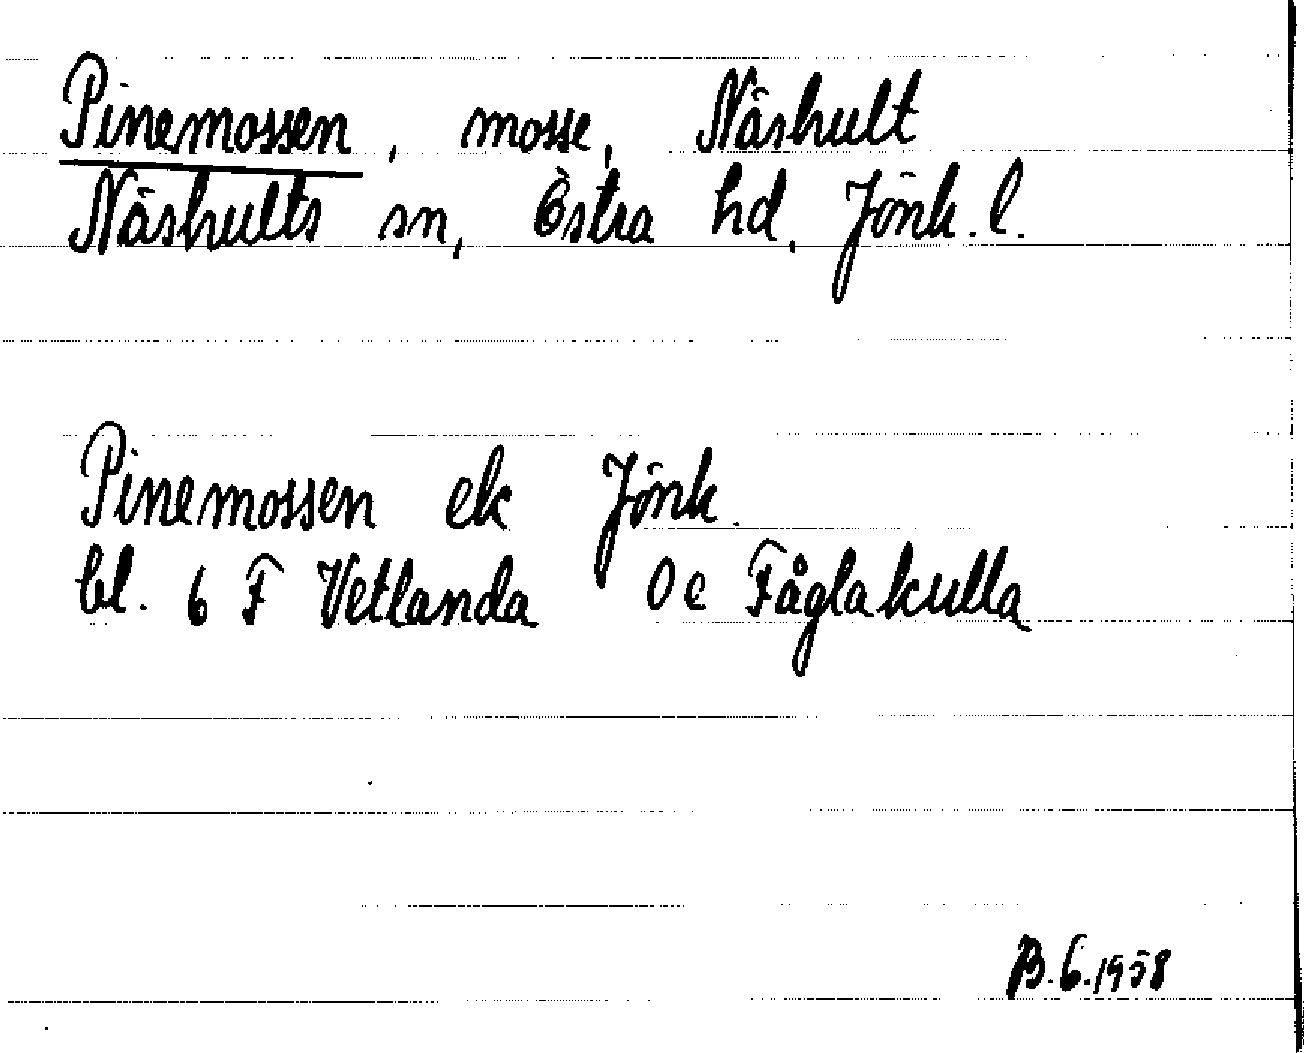 Pinemossen, mosse, Näshult
Näshults sn, Östra hd, Jönk. l.
Pinemossen ek Jönk.
bl. 6 F Vetlanda 0 e Fåglakulla
B.6.1958